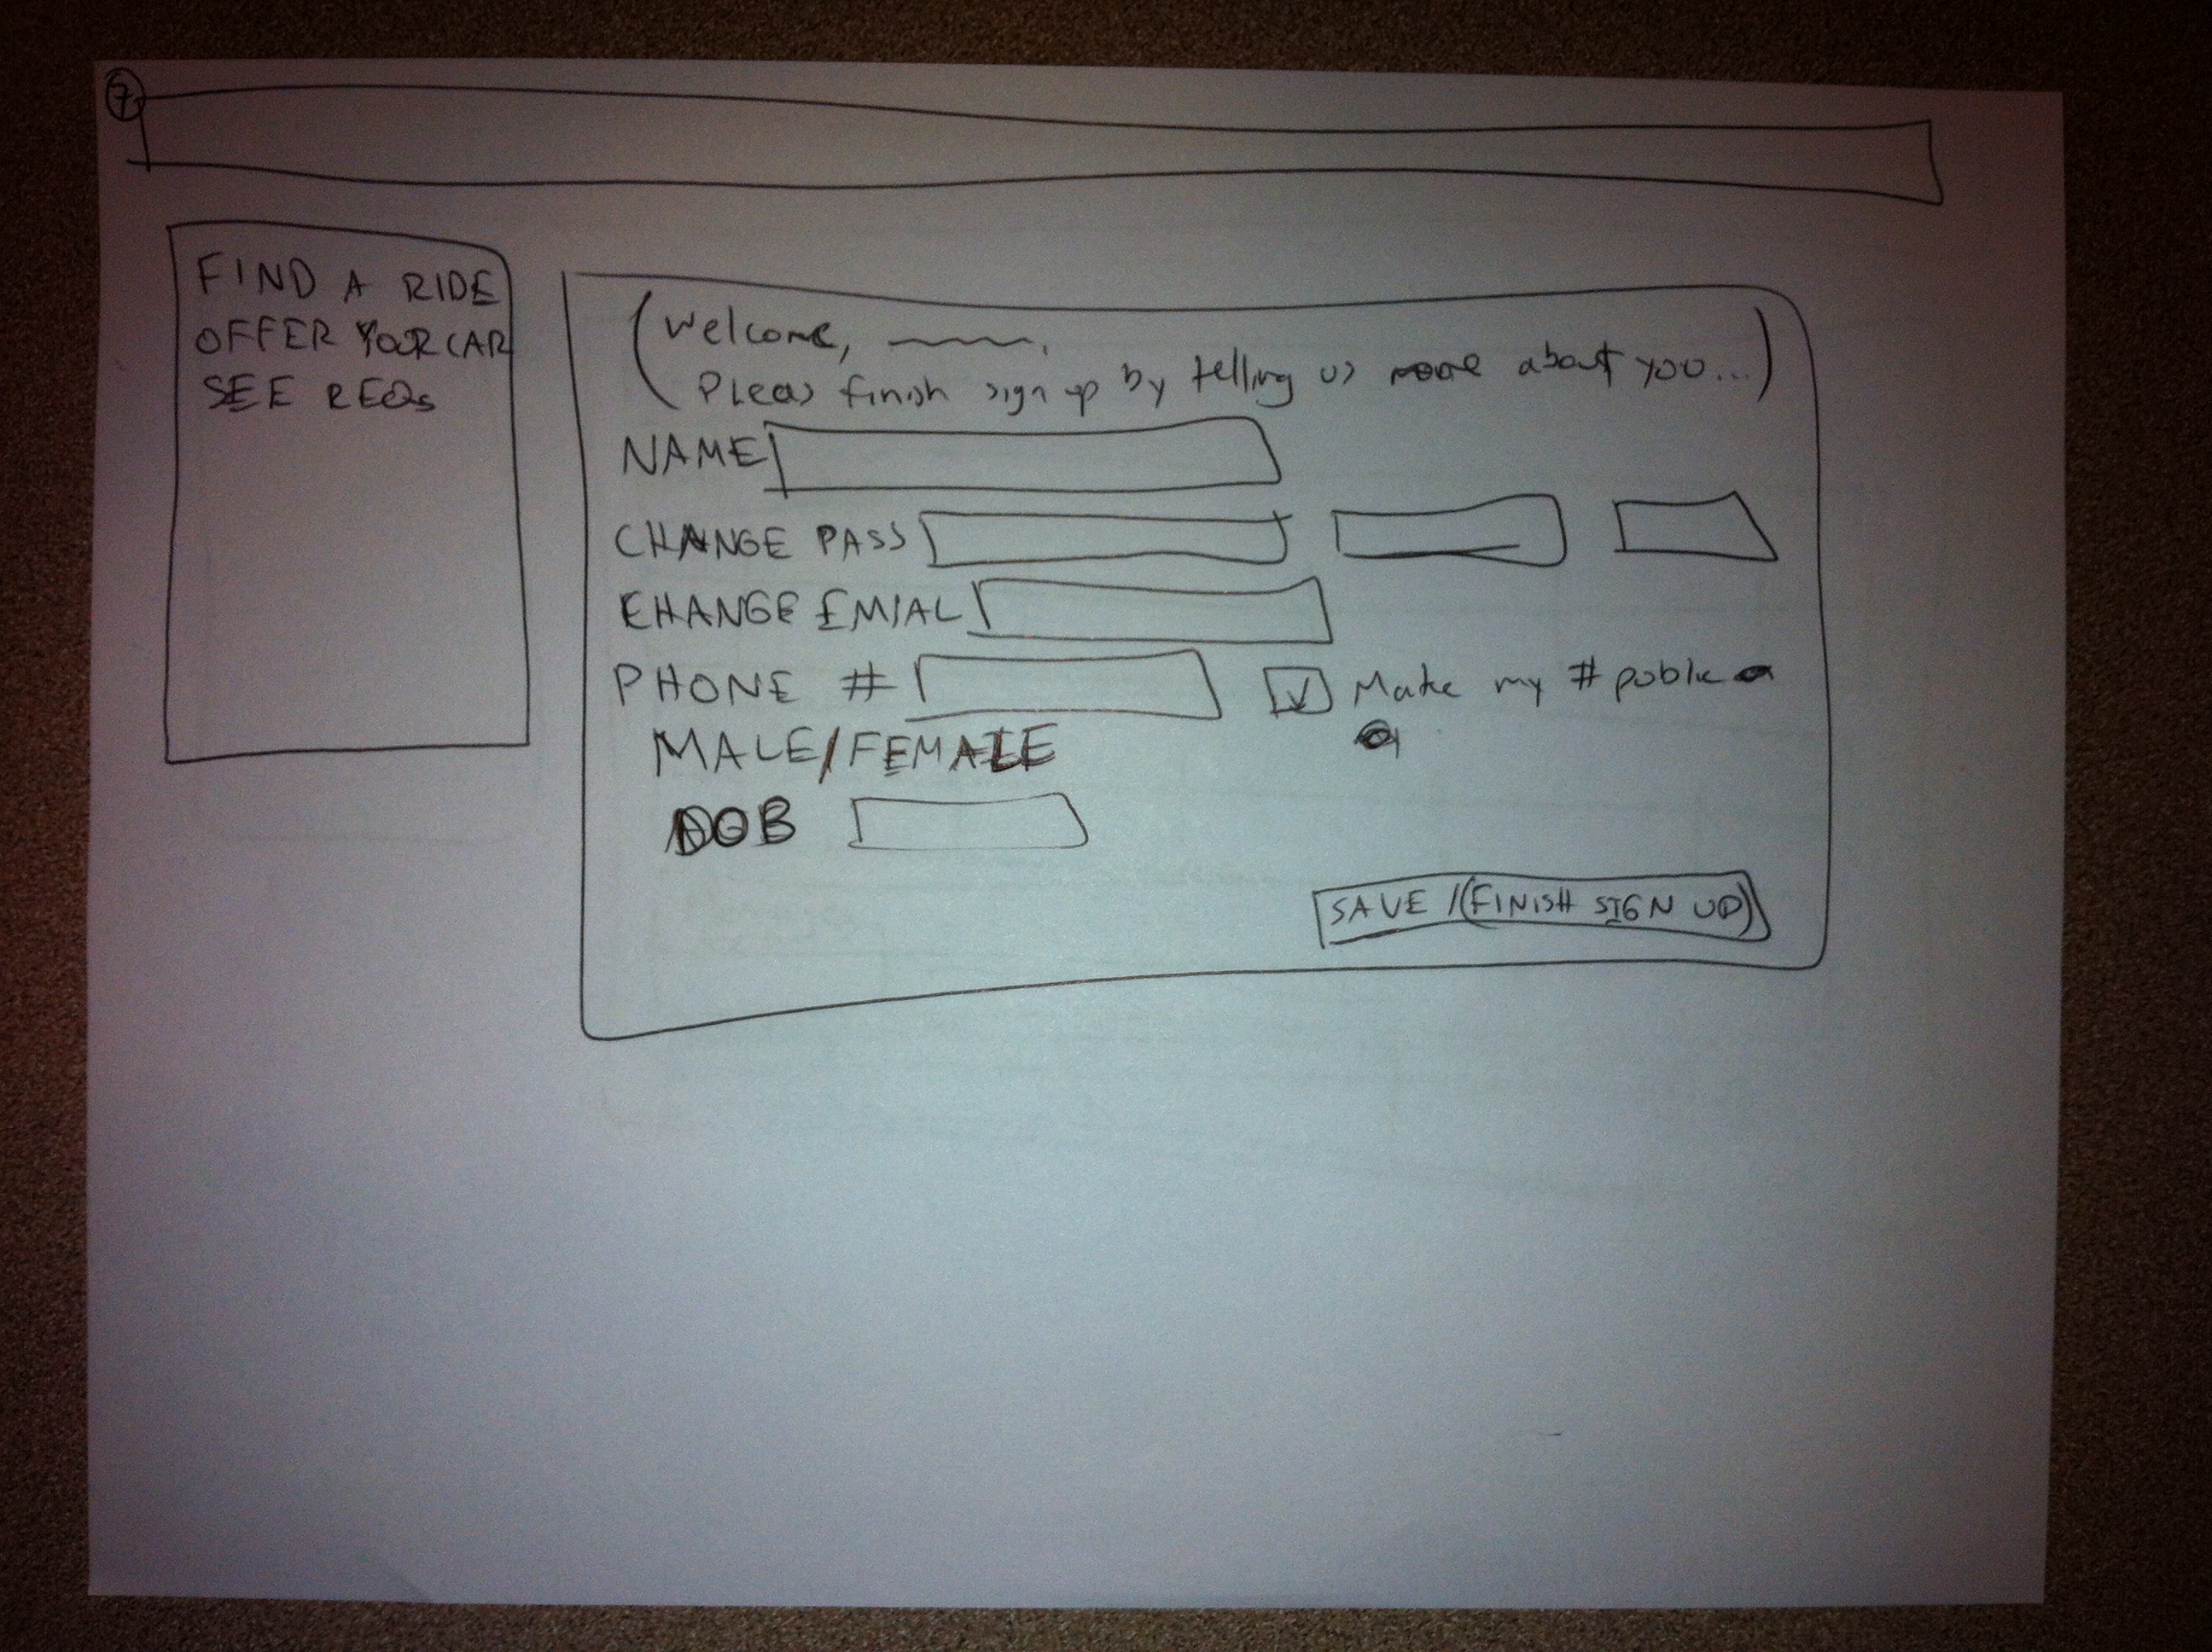 7
FIND A RIDE
OFFER YOUR CAR
SEE REQs
(Welcome, .
Pleas finish sign up by telling us more about you...)
NAME
CHANGE PASS
CHANGE EMIAL
PHONE # Make my # public
MALE/FEMALE
DOB
SAVE /(FINISH SIGN UP)